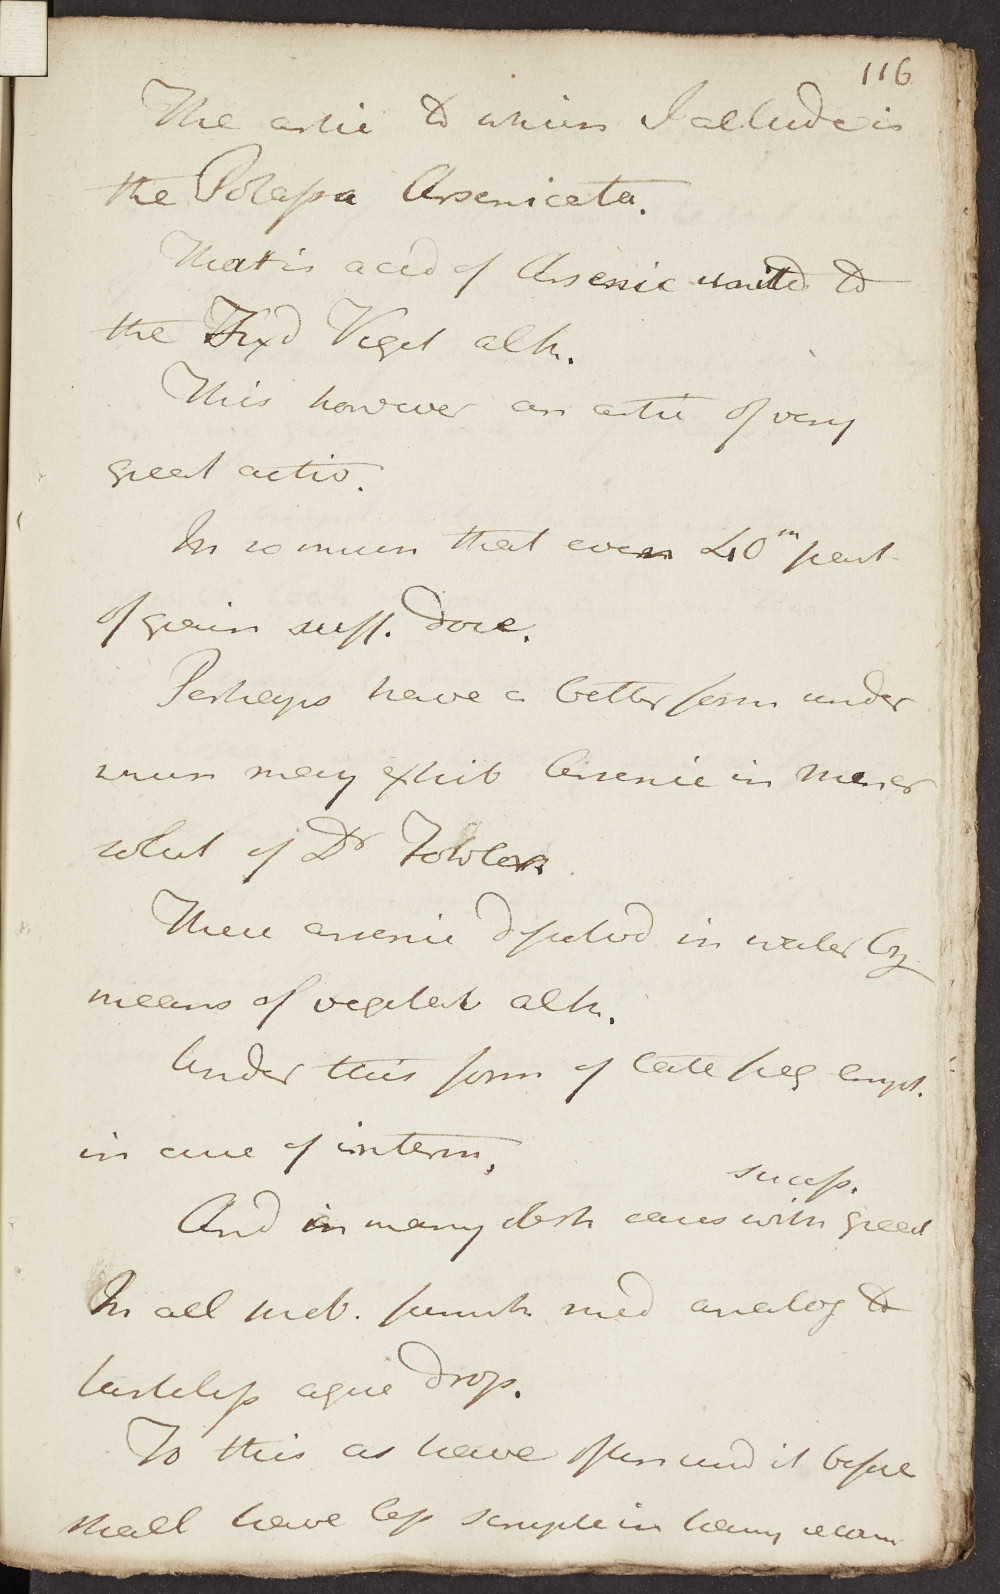 116
The artic to which I allude is
the Potassa Arseniceta.
That is acid of Arsenic united to
the Fixd Veget alk.
This however an artic of very
great actio.
In so much that even 40th part
of grain suff. dose.
Perhaps have a better form under
which may exhib Arsenic in
solut of Dr Fowler
There arsenic dissolvd in water by
means of vegetab alk.
Under this form of late freq empl.
in cure of interm.
success.
And in many obst cases with great
In all prob. furnish med analog to
tasteless ague drop.
To this as have often used it before
shall have less scruple in having recom